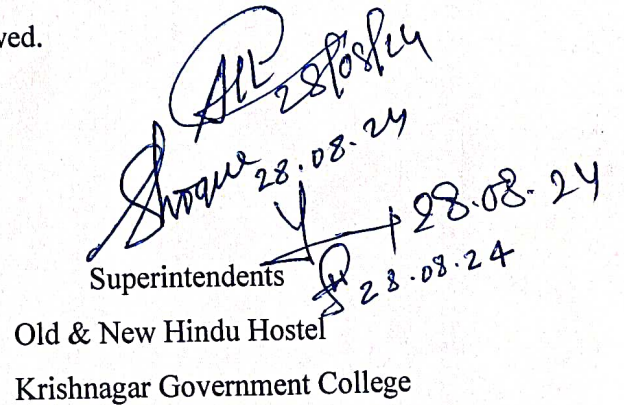 ved.
28/08/24
28.08.24
28.08.24
Superintendents
28.08.24
Old & New Hindu Hostel
Krishnagar Government College